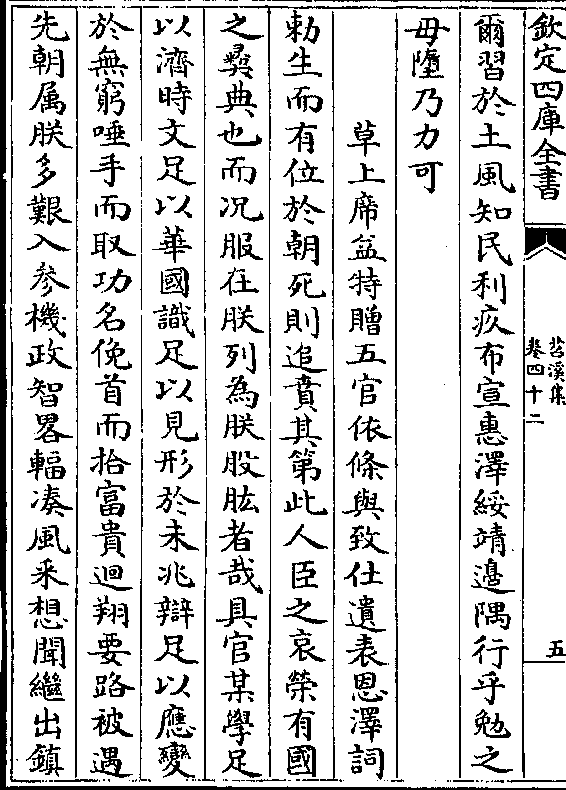 欽定四庫全書
苕溪集
卷四十二
五
爾習於土風知民利疚布宣惠澤綏靖邉隅行乎勉之
毋墮乃力可
草上席益特贈五官依條與致仕遺表恩澤詞
勅生而有位於朝死則追賁其第此人臣之哀榮有國
之彛典也而况服在朕列為朕股肱者哉具官某學足
以濟時文足以華國識足以見形於未兆辯足以應變
於無窮唾手而取功名俛首而拾富貴迴翔要路被遇
先朝属朕多艱入參機政智畧輻凑風采想聞繼出鎮